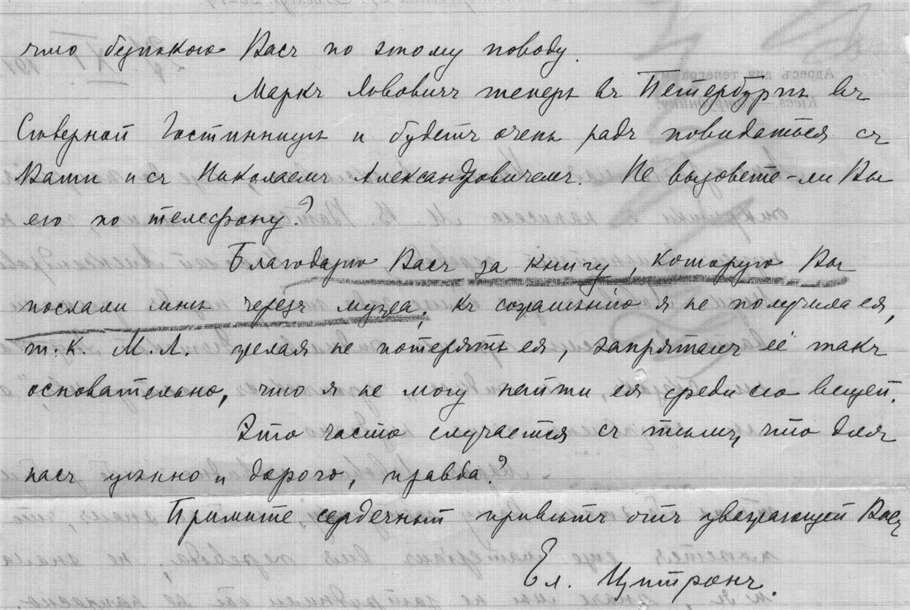 что безпокою Васъ по этому поводу.
Маркъ Львовичъ теперь въ Петербургѣ въ
Сѣверной Гостинницѣ и будетъ очень радъ повидаться съ
Вами и съ Николаемъ Александровичемъ. Не вызовете-ли Вы
его по телефону?
Благодарю Васъ за книгу, которую Вы
послали мнѣ черезъ мужа; къ сожалѣнію я не получила ея,
т.к. М.Л. желая не потерять ея, запряталъ её такъ
основательно, что я не могу найти ея среди его вещей.
Это часто случается съ тѣмъ, что для
насъ цѣнно и дорого, правда?
Примите сердечный привѣтъ отъ уважающей Васъ
Ел. Цитронъ.